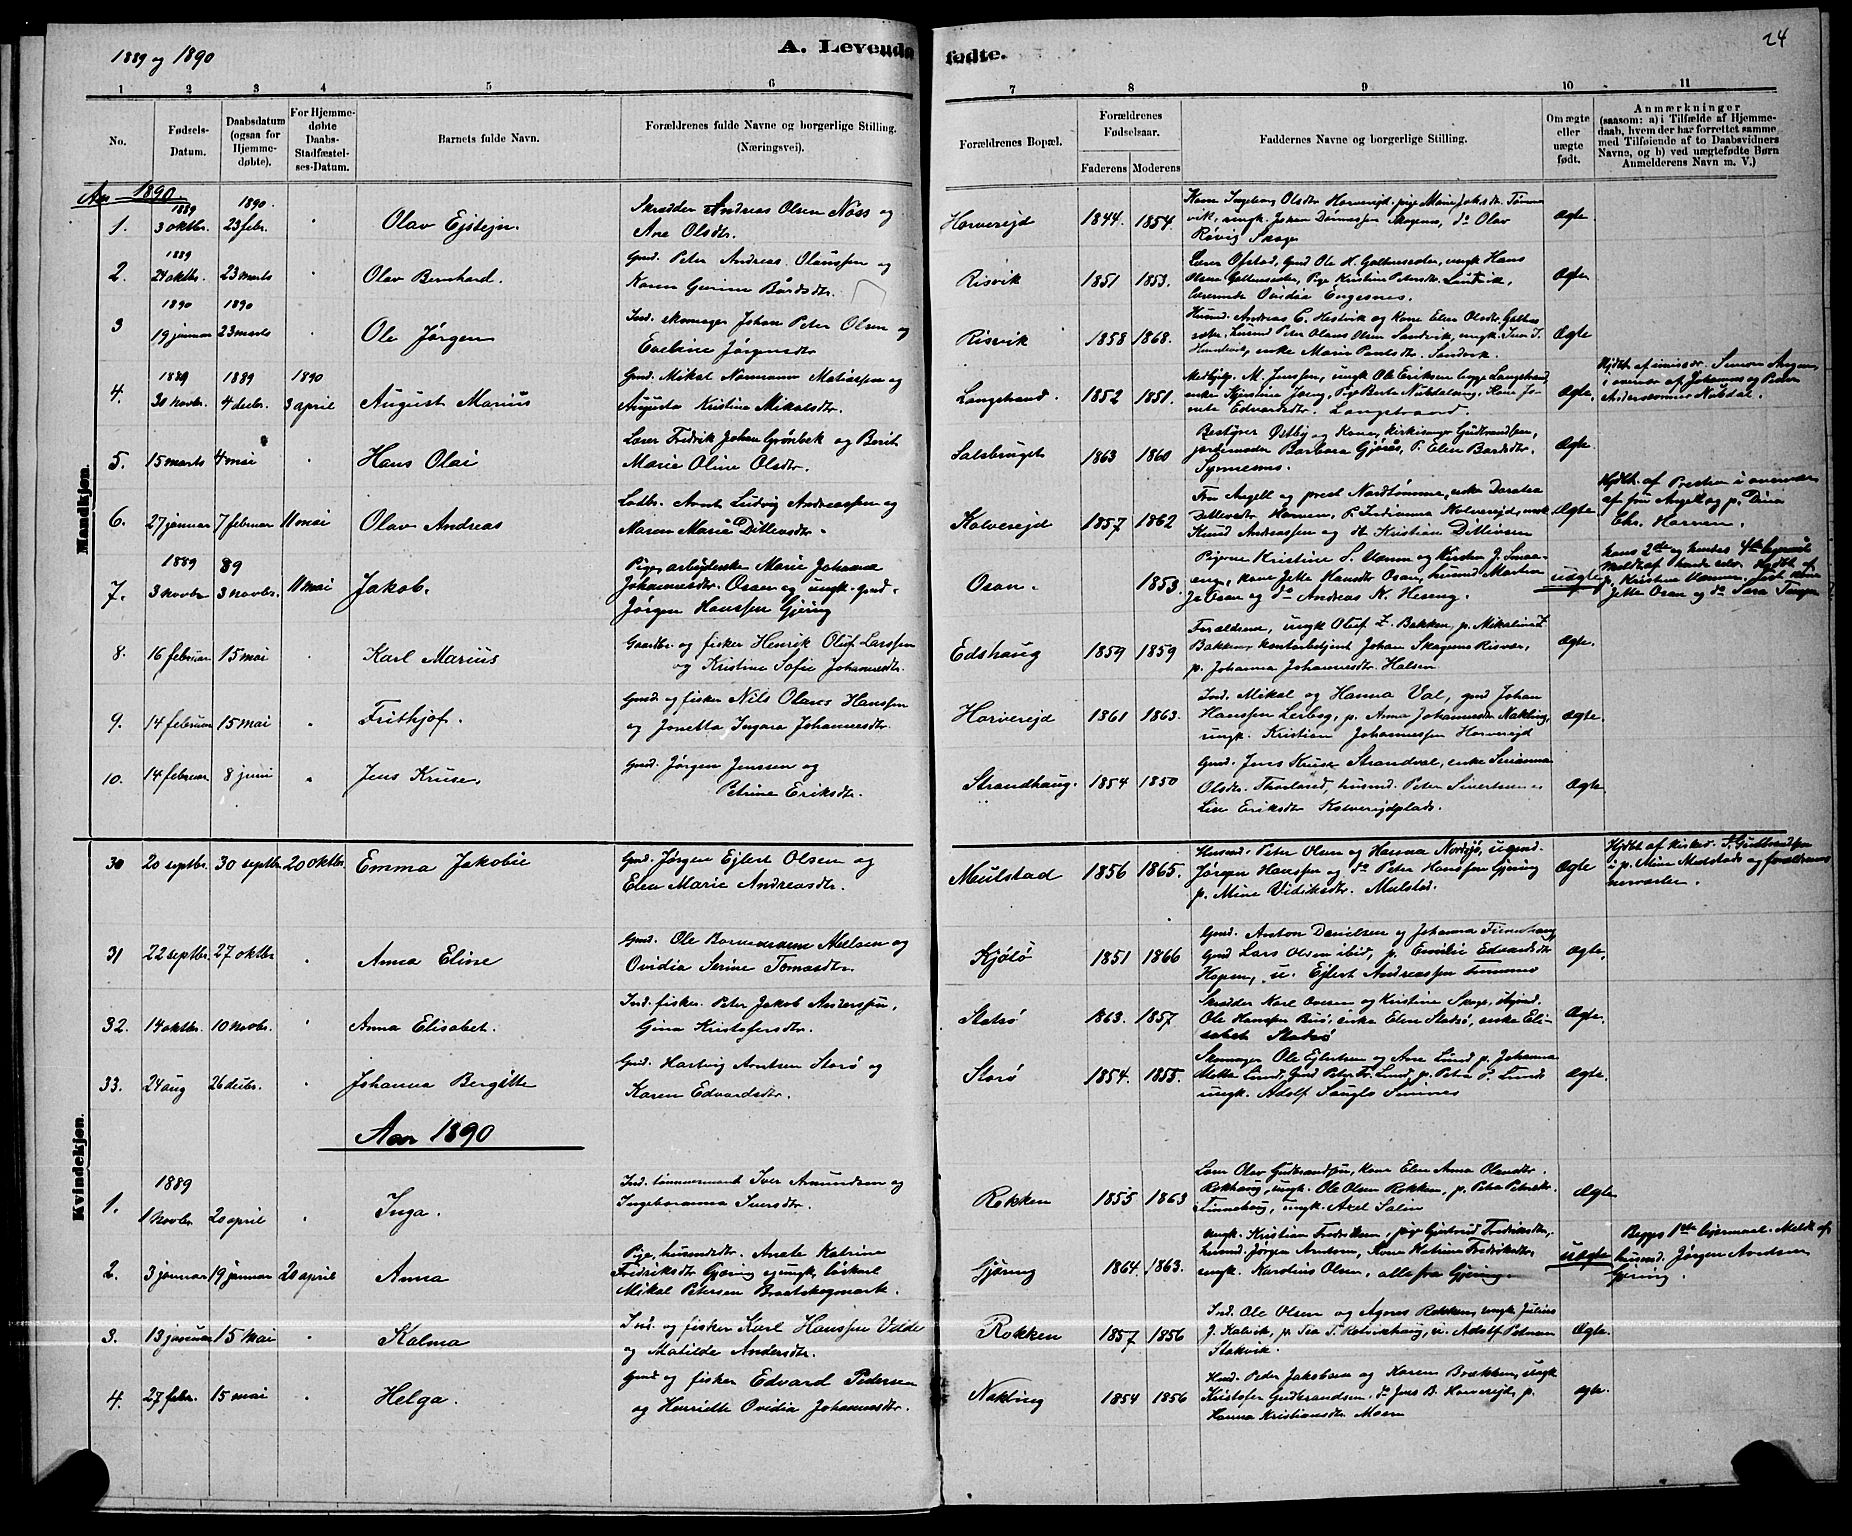 1889 og 1890
A. Levende fødte.
24
1 2 3 4 5 6 7 8 9 10 11
No.
Fødsels-
Datum.
Daabsdatum
(ogsaa for
Hjemme-
døbte).
For Hjemme-
døbte
Daabs-
Stadfæstel-
ses-Datum.
Barnets fulde Navn.
Forældrenes fulde Navne og borgerlige Stilling.
(Næringsvei).
Forældrenes Bopæl.
Forældrenes
Fødselsaar.
Faderens Moderens
Faddernes Navne og borgerlige Stilling.
Om ægte
eller
uægte
født.
Anmærkninger
(saasom: a) i Tilfælde af Hjemme-
daab, hvem der har forrettet samme
med Tilføiende af to Daabsvidners
Navne, og b) ved uægtefødte Børn
Anmelderens Navn m. V.)
Mandkjøn.
Aar 1890.
1889 1890.
1. 3 oktbr. 23 febr. Olav Ejstejn.
Skrædder Andreas Olsen Noss og
Ane Olsdtr.
Horverejd 1844. 1854.
Kone Ingeborg Olsdtr Horverejd, pige
vik, ungk. Johan Skogmo, do Olav
Rovig Skage
Ægte
1889
2. 24 oktbr. 23 marts Olav Bernhard.
Gmd. Peter Andreas Olaussen og
Karen Gurine Bårdsdtr.
Risvik 1851 1853.
Lærer Ofstad, Gmd Ole H. Galtnesseter, ungk Hans
Olsen Galtnesseter, Pige Kristine Petersdtr. Sandvik,
Ovidia Engesnes.
Ægte
1890 1890
3 19 januar 23 marts Ole Jørgen
Ind. skomager Johan Peter Olsen og
Eveline Jørgensdtr
Risvik 1858 1868.
Husmd. Andreas C. Hestvik og Kone Elen Olsdtr
husmd Peter Olaus Olsen Sandvik, ungk. Iver I.
enke Marie Paulsdtr. Sandvik.
Ægte
1889 1889 1890
4. 30 novbr. 4 decbr. 3 april August Marius
Gmd. Mikal Normann Matiassen og
Augusta Kristine Mikalsdtr.
Langstrand. 1852 1851.
M. Jenssen, ungk Ole Eriksen begge Langstrand,
enke Pige Berte Kone
Edvardsdtr. Langstrand.
Ægte.
Hjdbt. af Simon
i overvær af Johannes og Peder
5. 15 marts 4 mai Hans Olai
Lærer Fredrik Johan Grønbek og Berit
Marie Oline Olsdtr.
Salsbruget 1863 1860
Bestyrer Østby og Kone, kirkesanger Gudbrandsen,
jordemoder Barbara P. Elen Bårdsdtr.
Ægte.
6. 27 januar 7 februar 11 mai Olav Andreas
Ludvig Andreassen og
Maren Maria Ditlevsdtr.
Kolverejd 1857 1862
Fru Angell og prest Nordtømme, enke Doratea
Ditlevsdtr Hamen, P. Kolverejd, ungk
Knud Andreassen og do Kristian Ditlevsen
Ægte.
Hjdbt. af Presten i overvær
af fru Angell og p. Dina
Chr. Horven.
1889 89
7. 3 novbr. 3 novbr. 11 mai Jakob.
Pige, arbejderske Marie Johanna
Johannesdtr. Osan og ungk. gmd.
Jørgen Hanssen Gjøring
Osan. 1853.
Pigerne Kristine L. Vamm og Kirsten J.
kone Jette Hansdtr Osan, husmd Marten
J. Osan og do Andreas N. Heseng.
uægte
hans 2det og hendes 4de
p. Kristine Vamm.
Jette Osan og do Sara Tangen
8. 16 februar 15 mai Karl Marius
Gaardbr. og fisker Henrik Oluf Larssen
og Kristine Sofie Johannesdtr.
Edshaug 1859 1859
Forældrene, ungk Oluf L. Bakken, p. Mikaline L.
Bakken, kontorbetjent Johan Skogmo Risvær,
p. Johanna Johannesdtr. Halsen
Ægte.
9. 14 februar 15 mai Frithjof.
Gmd. og fisker Nils Olaus Hanssen
og Jonetta Ingara Johannesdtr.
Horverejd 1861 1863.
Ind. Mikal og Hanna Val, gmd Johan
Hanssen Lerberg, p. Anna Johannesdtr Nakling,
ungk. Kristian Johannessen Horverejd
Ægte.
10. 14 februar 8 juni Jens Kruse.
Gmd. Jørgen Jenssen og
Petrine Eriksdtr.
Strandhaug. 1854 1850
Gmd. Jens Kruse Strandval, enke Serianna
Olsdtr. husmd. Peter Sivertsen og
Lise Eriksdtr Kolverejdplads.
Ægte.
Kvindekjøn.
30 20 septbr. 30 septbr. 20 oktbr. Emma Jakobie
Gmd. Jørgen Ejlert Olsen og
Elen Marie Andreasdtr.
Meulstad 1856 1865.
Husmd. Peter Olsen og Hanna Nordsjø, ugmd.
Jørgen Hanssen og do Peter Hanssen Gjøring
p. Mine Vidiksdtr. Mulstad.
Ægte
Hjdbt af kirkes. Gudbrandsen
i p. Mine Mulstads og forældrenes
nærværelse.
31 22 septbr. 27 oktbr Anna Eline
Gmd. Ole Nielsen og
Ovidia Serine Tomasdtr.
Kjølsø 1851 1866
Gmd. Anton Danielsen og Johanna Finnehaug,
Gmd Lars Olsen ibid, p. Emilie Edvardsdtr
Hopen, u. Ejlert Andreassen
Ægte.
32. 14 oktbr. 10 novbr. Anna Elisabet.
Ind. fisker Peter Jakob Anderssen,
Gina Kristofersdtr.
Statsø 1863. 1857
Skrædder Karl Ovesen og Kristine Skage,
Ole Hanssen enke Elen Statsø, enke Eli-
sabet Statsø
Ægte.
33. 24 aug 26 decbr. Johanna Bergitte
Gmd. Hartvig Arntsen Storø og
Karen Edvardsdtr.
Storø 1854. 1855.
Skomager Ole Ejlertsen og Ane Lund, p. Johanna
Mette Lund, Gmd Peter Fr. Lund, p. Petra P. Lund
ungk. Adolf
Ægte.
Aar 1890
1889
1. 1 novbr. 20 april Inga.
Ind. tømmermand Iver Amundsen og
Ingeboranna Iversdtr.
Rokken 1855 1863
Lærer Olav Gudbrandsen, kone Elen Anna Olausdtr.
Rokhaug, ungk. Ole Olsen Rokken, p. Petra Petersdtr
Finnehaug, ungk. Axel Salin
Ægte
2. 3 januar 19 januar 20 april Anna
Pige, husmdsdtr. Anete Katrine
Fredriksdtr Gjøring og ungk. løskarl
Mikal Petersen Brostskogmark.
Gjøring 1864. 1863.
ungk. Kristian Fredriksen, pige Gjertrud Fredriksdtr,
husmd. Jørgen Arntsen, Kone Katrine Fredriksdtr,
ungk. Nardius Olsen, alle fra Gjøring.
uægte
Begges 1ste Lejermaal. Meldt af
husmd. Jørgen Arntsen
Gjøring.
3. 13 januar 15 mai Kalma
Ind. og fisker Karl Hanssen Vedde
og Matilde Andersdtr.
Rokken 1857 1856
Ind. Ole Olsen og Agnes Rokken, ungk Julius
J. Kalvik, p. u. Adolf Petersen
Stokvik.
Ægte.
4. 27 febr. 15 mai Helga.
Gmd og fisker Edvard Pedersen
og Henriette Ovidia Johannesdtr.
Nakling 1854 1856
Husmd. Peder Jakobsen og Karen Brækken, ungk
Kristofer Gudbrandsen, do Jens B. Horverejd, p.
Hanna Kristiansdtr Moen
Ægte.